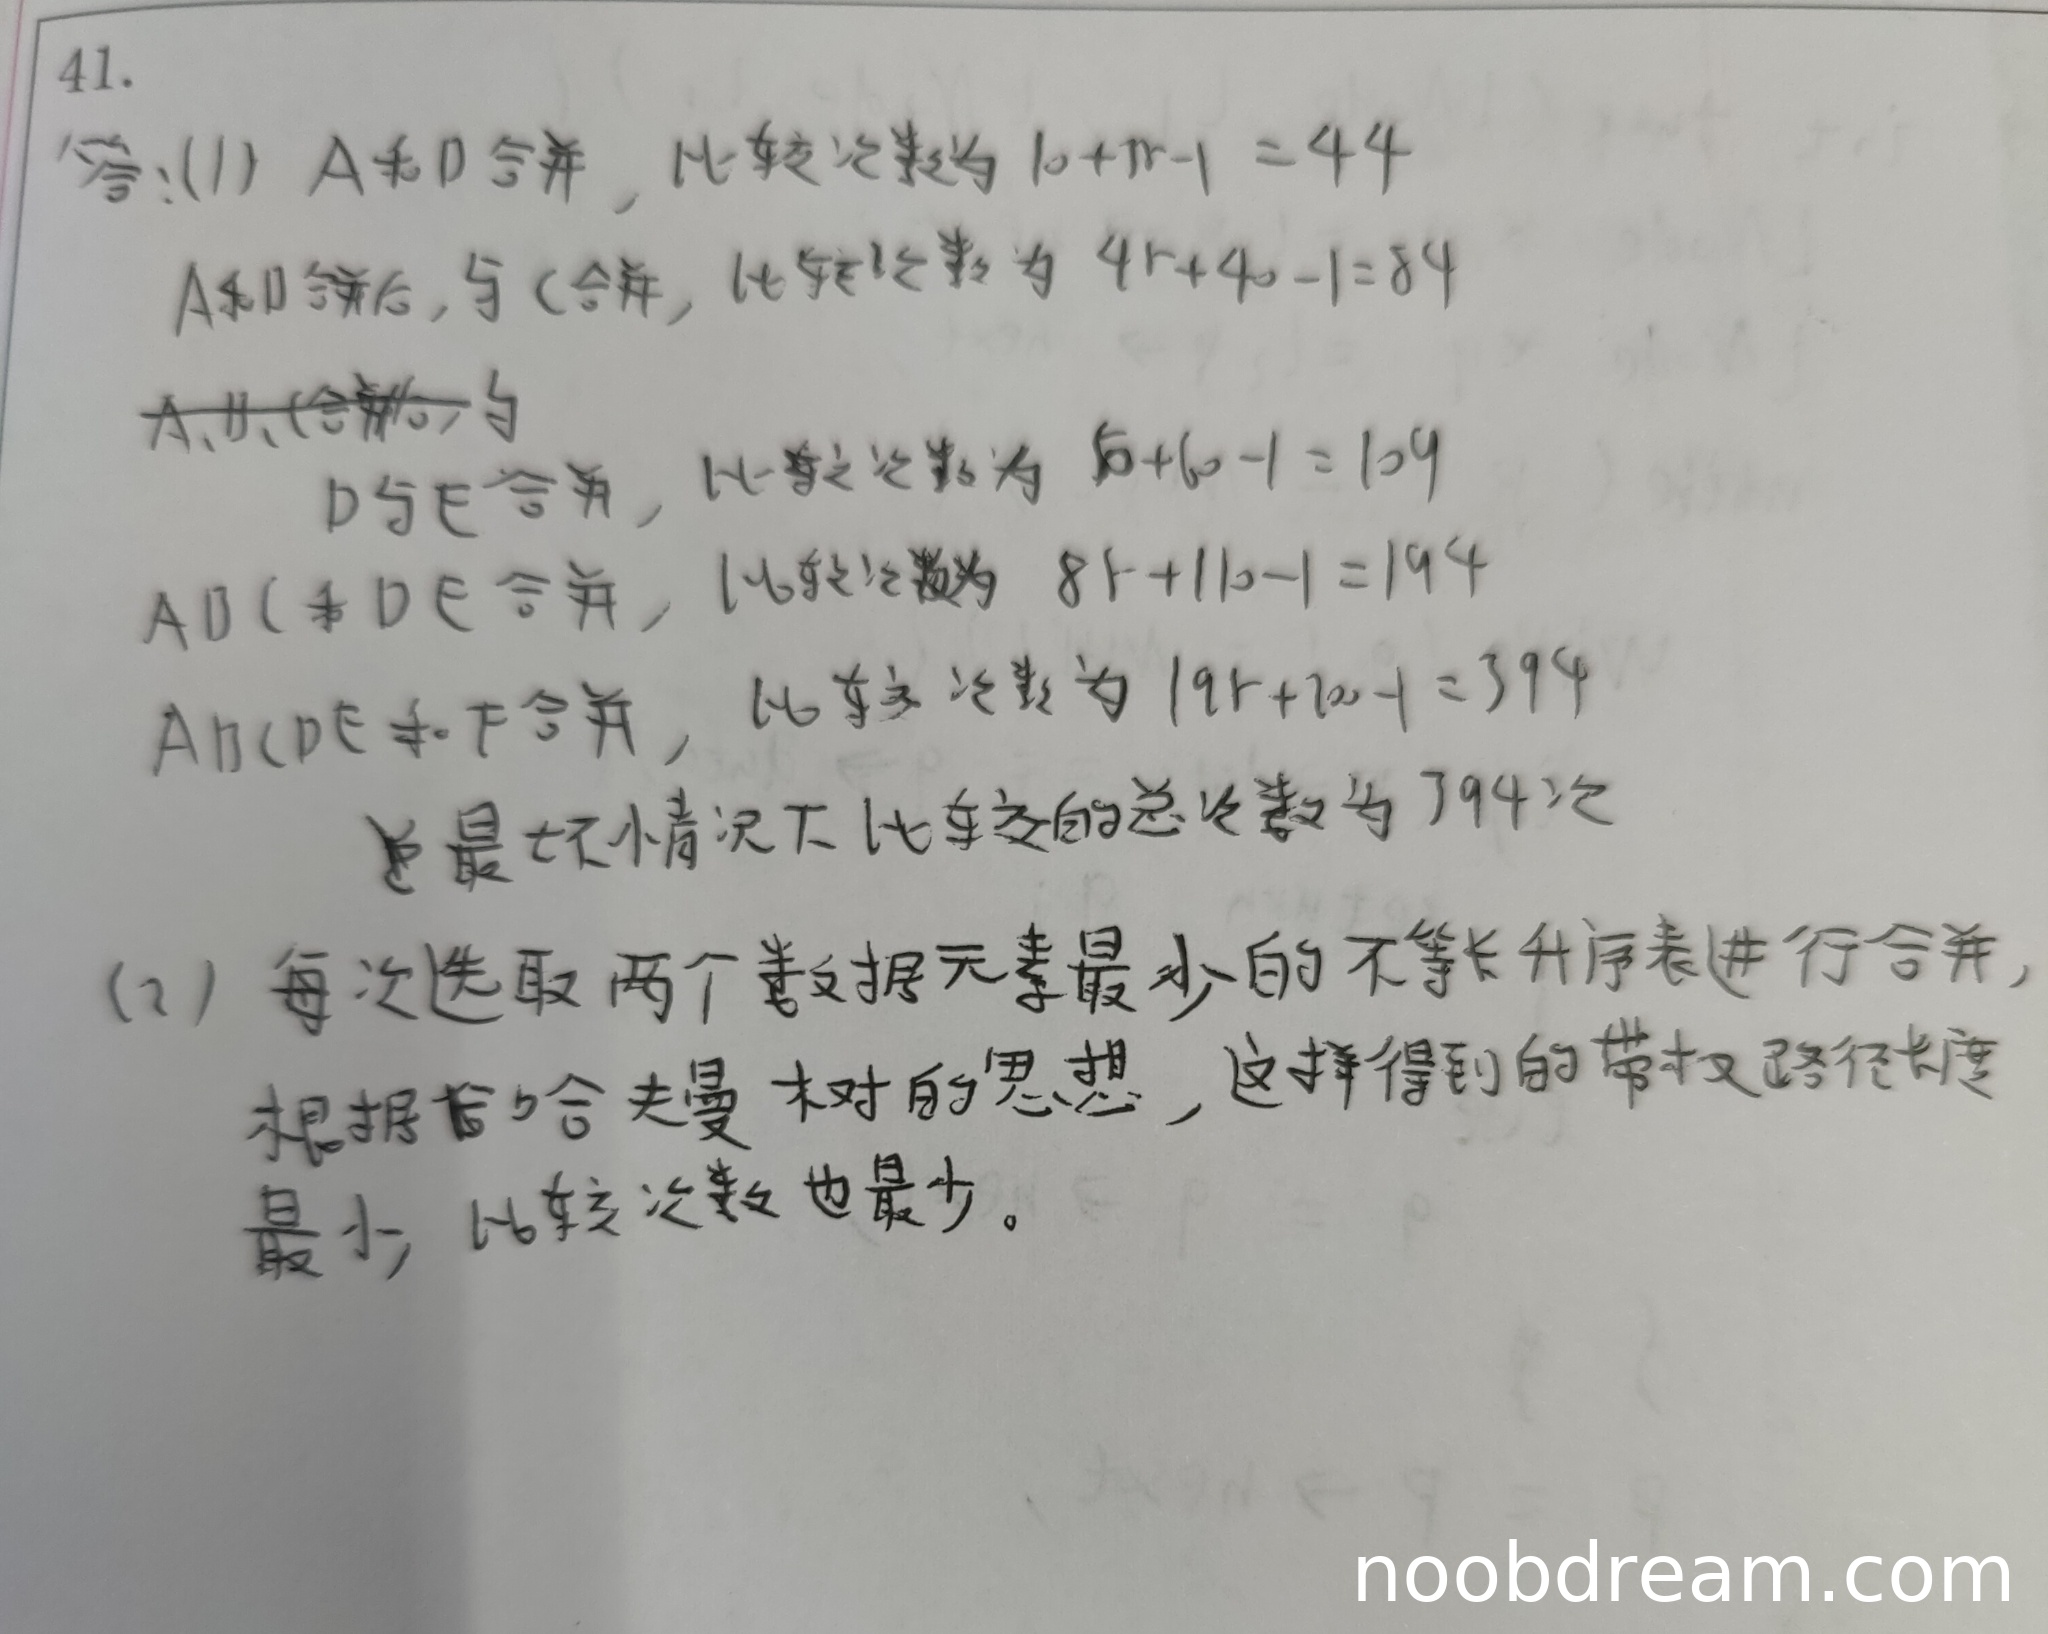 41.
答:(1) A和B合并，比较次数为 10+35-1 =44
A和B合并后,与C合并,比较次数为 45+40-1=84
A、B、C合并后,与
D与E合并，比较次数为 50+60-1=109
ABC和DE合并，比较次数为 85+110-1=194
ABCDE和F合并，比较次数为 195+200-1=394
最坏情况下比较的总次数为394次
(2) 每次选取两个数据元素最少的不等长升序表进行合并,
根据哈夫曼树的思想,这样得到的带权路径长度
最小,比较次数也最少。
noobdream.com